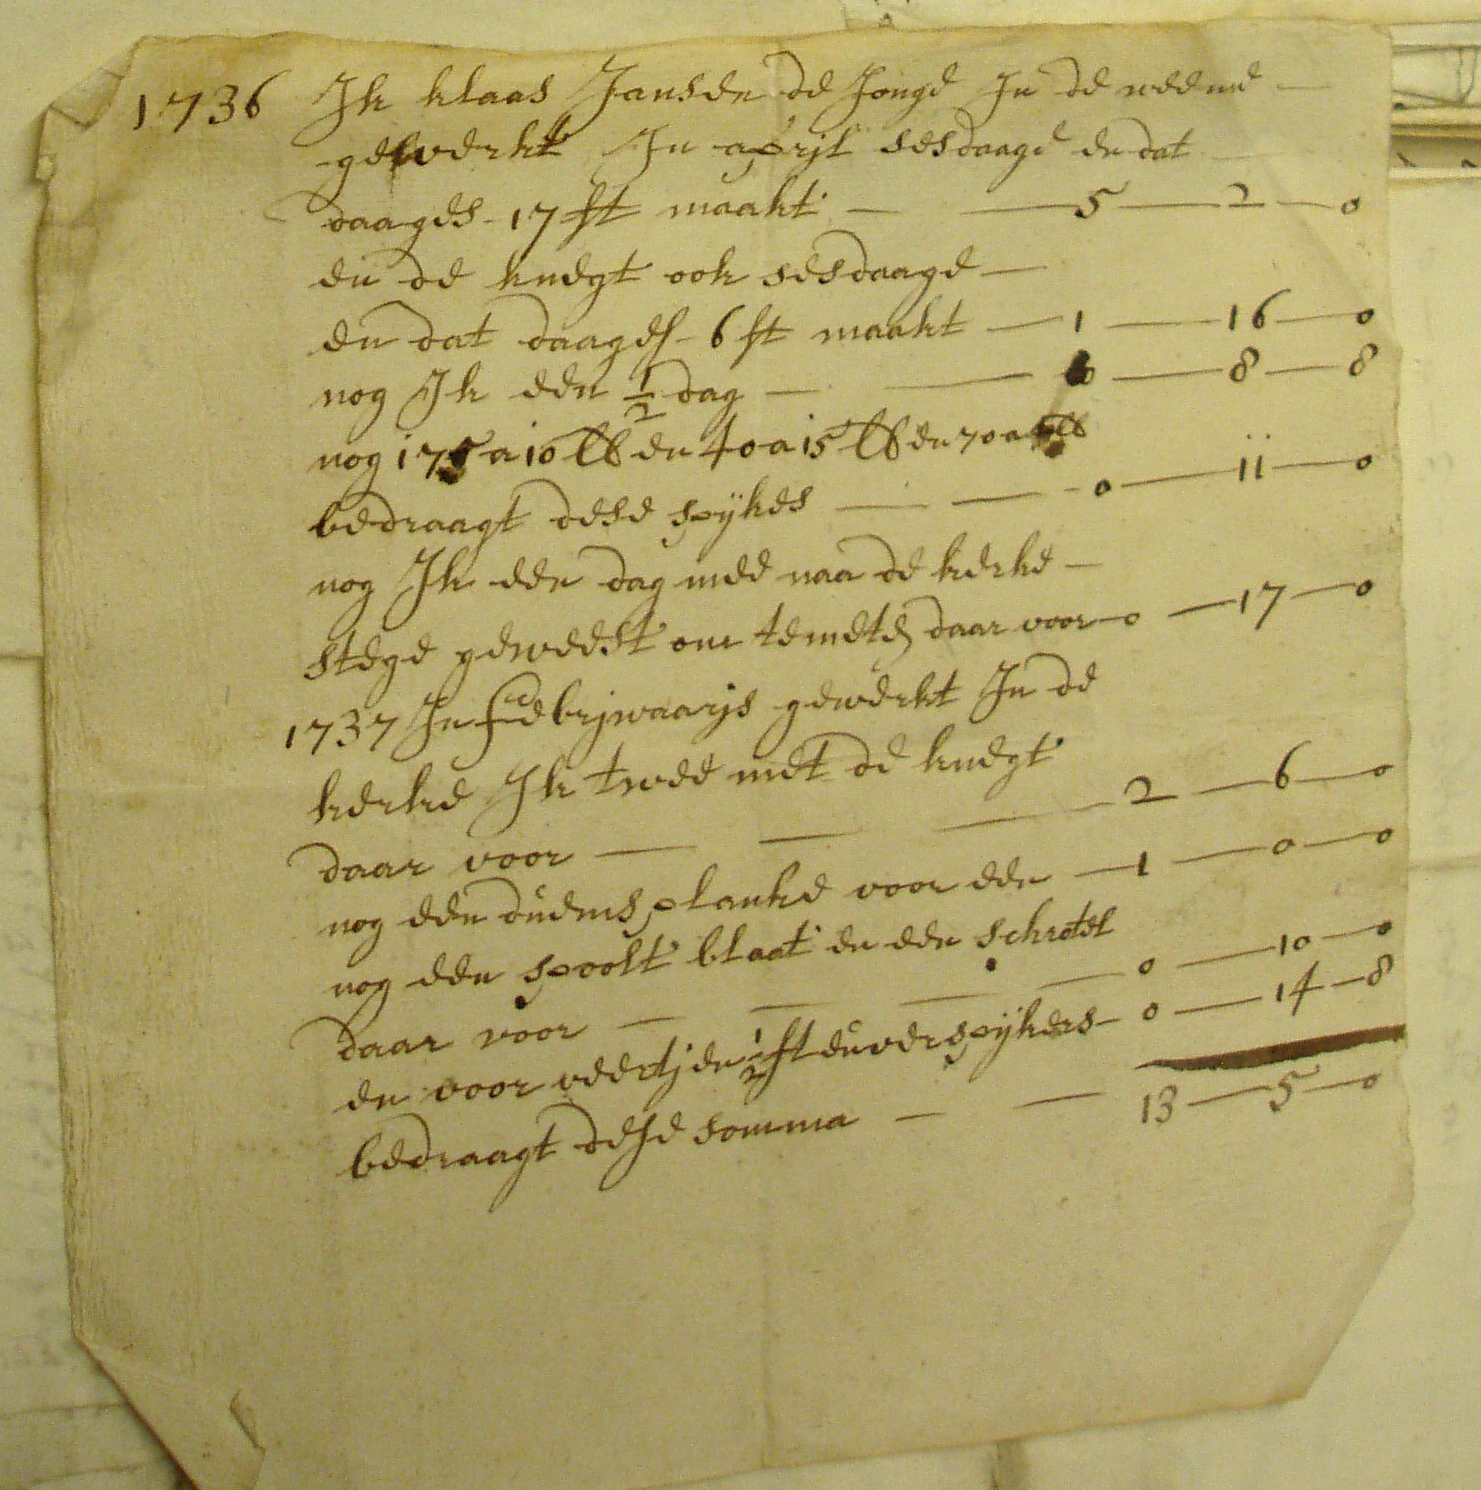 1736 Ik klaas Jansen de Jonge In de weeme —
gewerkt In aprjl sesdaage en dat —
daages - 17 st maakt — — 5 — 2 — 0
en de knegt ook sesdaage —
en dat daages - 6 st maakt — 1 — 16 — 0
nog Ik een ½ dag — — 0 — 8 — 8
nog 175 a 10 lb en 40 a 15 lb en 70 a lb
bedraagt dese spykes — — 0 — 11 — 0
nog Ik een dag mee naa de kerke —
stege geweest om temeten daar voor — 0 — 17 — 0
1737 In febrjwaarjs gewerkt In de
kerke Ik twee met de knegt
daar voor — — — 2 — 6 — 0
nog een duems planke voor een — 1 — 0 — 0
nog een spoolt blaat en een schrotel
daar voor — — — 0 — 10 — 0
en voor veertjen ½ st euverspykers — 0 — 14 — 8
bedraagt dese somma — — 13 — 5 — 0